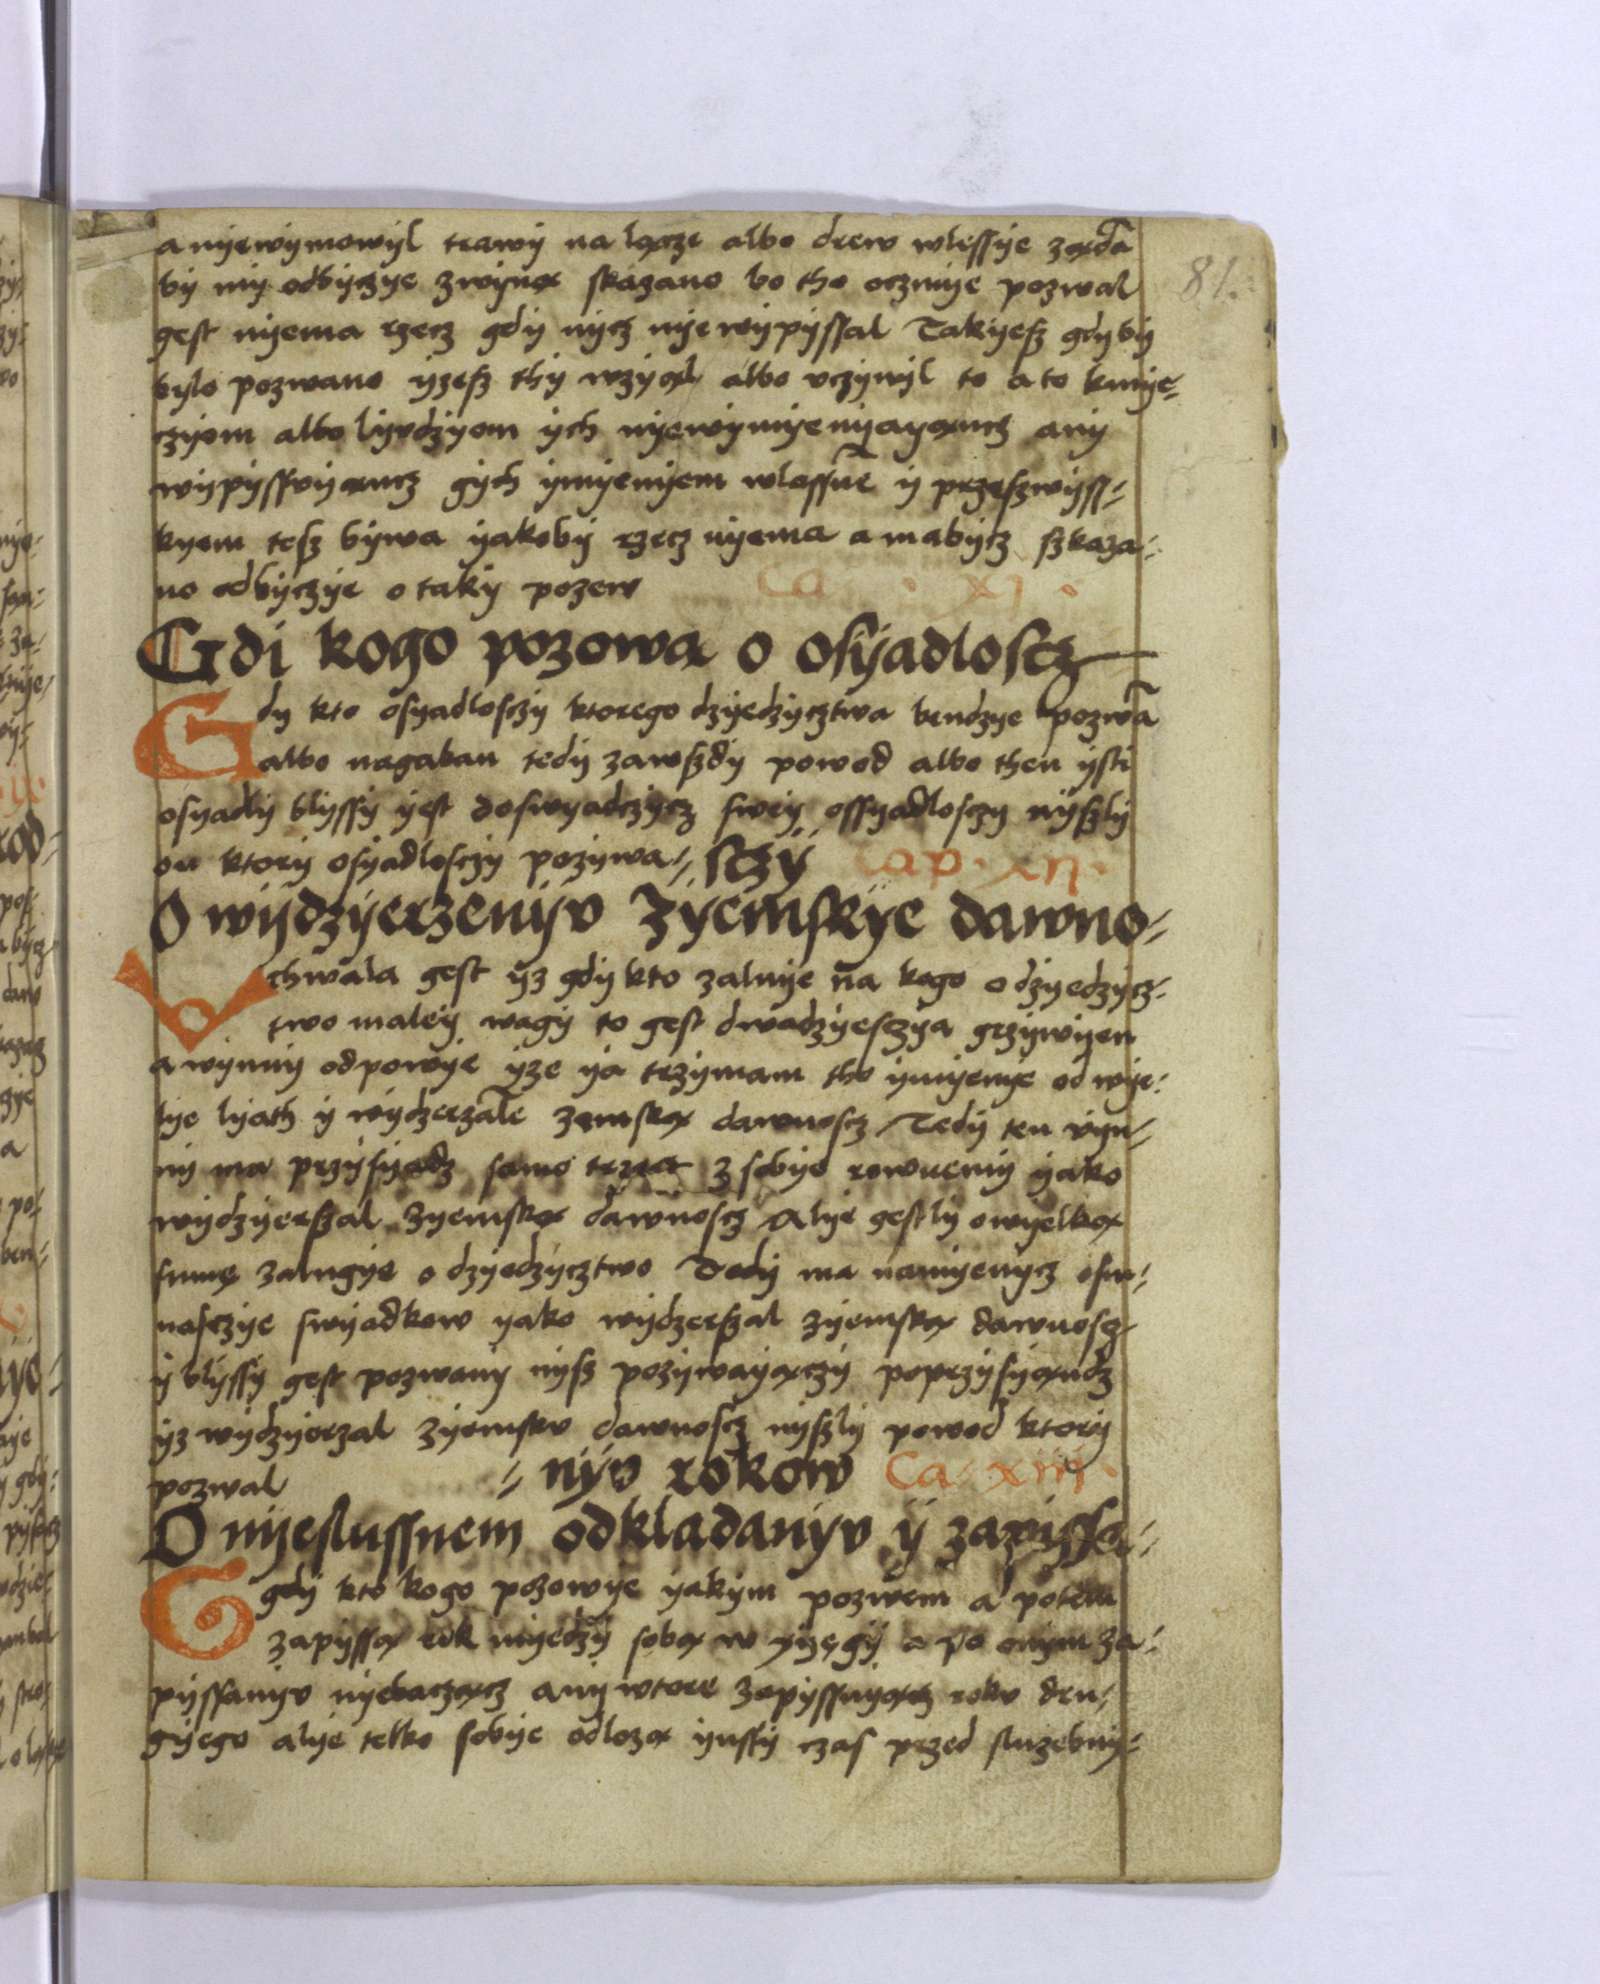 81.
a nyewymowyl trawy na lącze albo drew wlessye żąda
by my odbyczye zwyną skazano bo tho oczmye pozwal
gest nyema rzecz gdy nycz nyewypyssal Takyesz gdy by
bylo pozwano yzesz thy wzyąl albo vczynyl to a to kmye=
czyom albo lyvdzyom ych nyewymyenyayąncz any
wypyssvyąncz gych ymyenyem wlassne y przeszwyss=
kyem tesz bywa yakoby rzecz nyema a mabycz szkaza=
no odbyczye o taky pozew Ca · XI ·
Gdi kogo pozowa o osyadloscz
Gdy kto osyadlosczy ktorego dzyedzycztwa bendzye pozwā
albo nagaban tedy zawszdy powod albo then ysti
osyadly blyssy yest doswyadczycz swey ossyadlosczy nyszly
on ktory osyadlosczy pozywa= sczy Cap· XII·
O wydzyerzenyv zyemskye dawno=
Vchwala gest yz gdy kto zalnye na kogo o dzyedzycz=
two maley wagy to gest dwadzyesczya grzywyen
a wynny odpowye yze ya trzymam tho ymyenye od wye=
lye lyath y wydzerzale zemską dawnoscz Tedy ten vyn=
ny ma przysyadz samo trzecz z sobye rownemy yako
wydzyerszal zyemską dawnoscz Alye gestly o wyelką
summę zalugye o dzyedzycztwo Tedy ma namyenycz osm=
nasczye swyadkow yako wydzerszal zyemską dawnoscz
y blyssy gest pozwany nysz pozywayączy poprzysyąndz
yz wydzyerzal zyemskv dawnoscz nyszly powod ktory
pozwal = nyv rokow Ca· XIII·
O nyeslussnem odkladanyv y zapissa=
Ggdy kto kogo pozowye yakym pozwem a potem
zapyssą rok myedzy sobą w xyęgy a po onym za=
pyssanyv nyebacząncz any wtore zapyssuyącz rokv dru=
gyego alye telko sobye odlozą ynssy czas przed sluzebny=